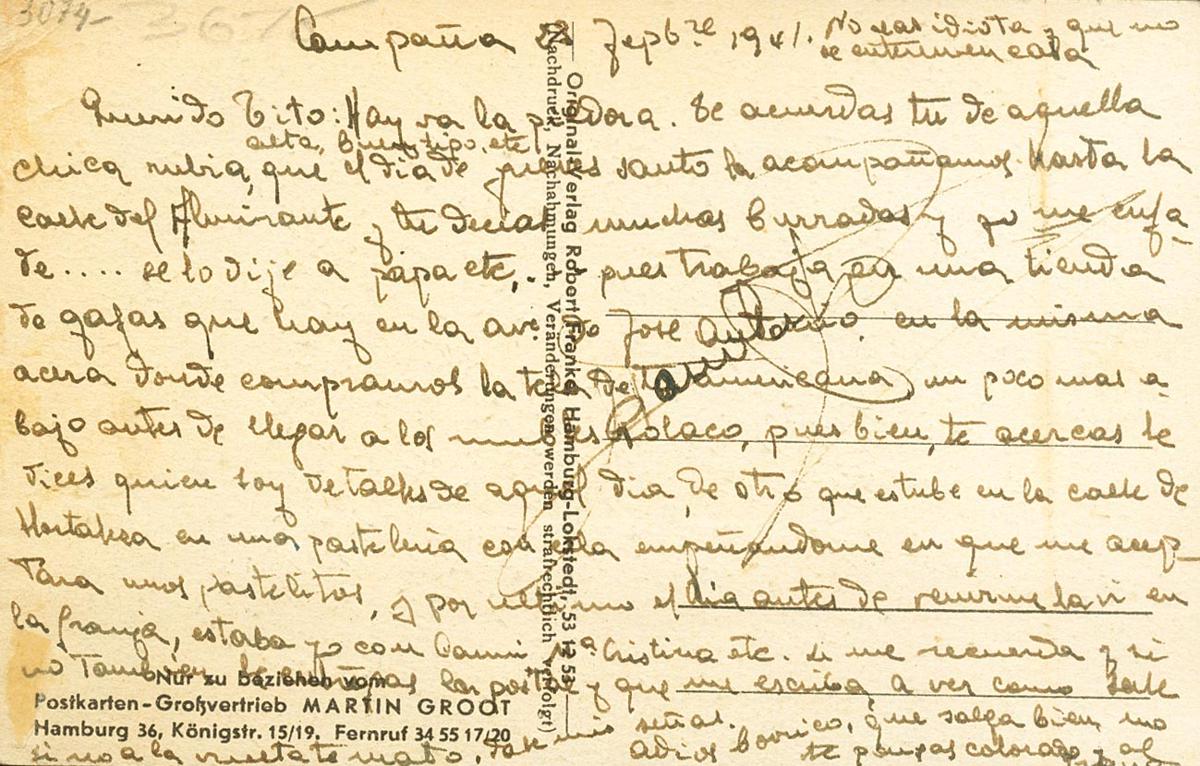 3074-
367
Campaña 28 Sepbre 1941. No seas idiota y que no
se enteren en casa
Querido Tito: Hay va la p dora. Te acuerdas tu de aquella
alta, buen tipo, etc
chica rubia, que el dia de jueves santo la acompañamos hasta la
calle del Almirante y tu decias muchas burradas y yo me enfa-
de..... se lo dije a papa etc,.. pues trabaja en una tienda
de gafas que hay en la ave. de Jose Antonio. en la misma
acera donde compramos la tela de tu americana, un poco mas a-
bajo antes de llegar a los Polaco, pues bien, te acercas le
dices quien soy detalles de aquel dia, de otro que estube en la calle de
Hortaleza en una pasteleria con ella empeñandome en que me acep-
tara unos pasteles, y por ultimo el dia antes de venirme la vi en
la granja, estaba yo con Mª Cristina etc. si me recuerda y si
no tambien le entregas la postal y que me escriba a ver como sale
mis señas.
si no a la vuelta te mato, dale adios borrico, que salga bien no
te pongas colorado y al
Original-Verlag Robert Franke Hamburg-Lokstedt, 53 12 53
(Nachdruck, Nachahmungen, Veränderungen werden strafrechtlich verfolgt)
Nur zu beziehen vom
Postkarten-Großvertrieb MARTIN GROOT
Hamburg 36, Königstr. 15/19, Fernruf 34 55 17/20